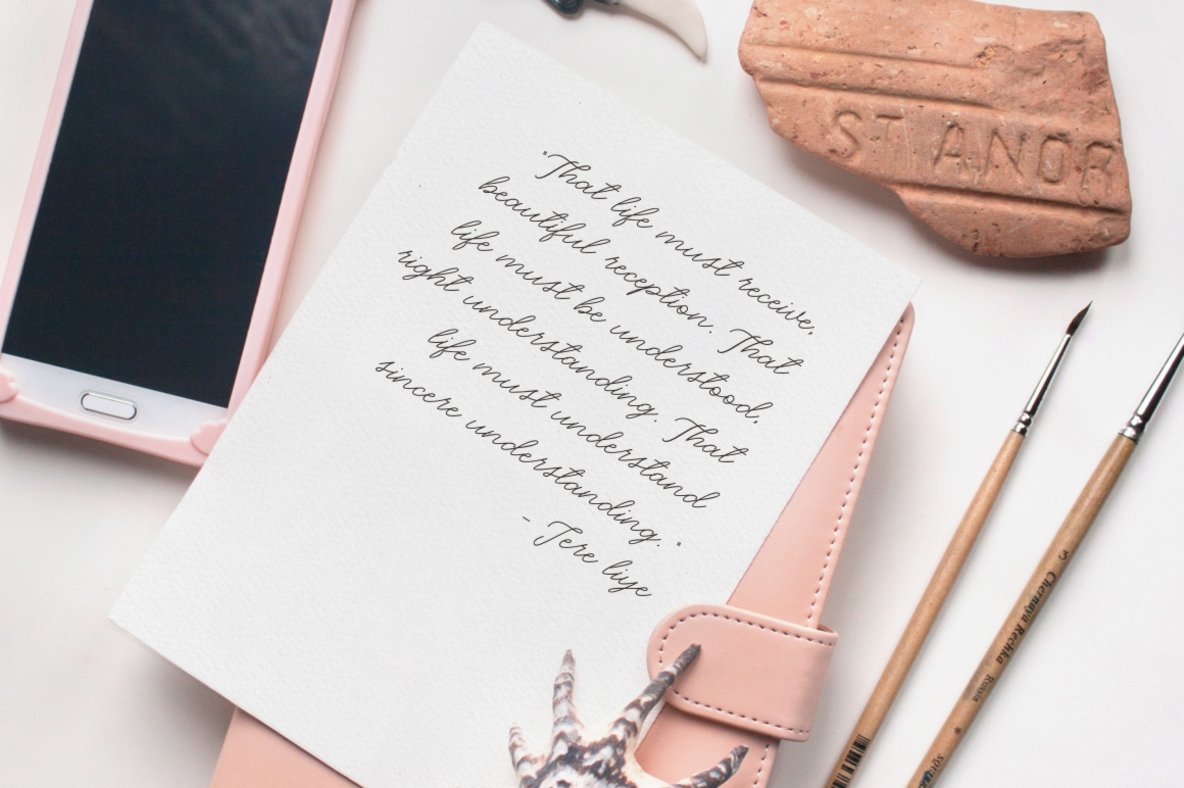 "That life must receive,
beautiful reception. That
life must be understood,
right understanding. That
life must understand
sincere understanding."
- Tere liye
ST ANOR
3 Chernaya Rechka Russia *